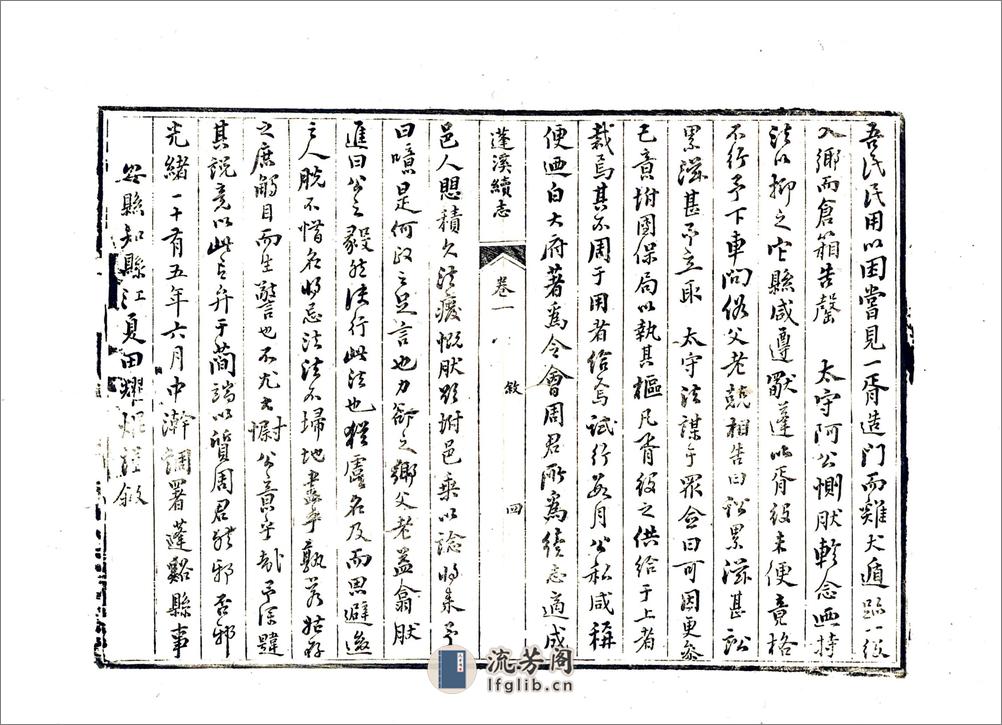 吾民民用以困嘗見一胥造門而雞犬遁跡一役
入鄉而倉箱告罄 太守阿公惻肰軫念迺持
法以抑之它縣咸遵猒蓬以胥役未便竟格
不行予下車問俗父老兢相告曰訟累滋甚訟
累滋甚予立取 太守法謀于眾僉曰可因更參
己意坿團保局以執其樞凡胥役之供給于上者
裁焉其不周于用者給焉試行數月公私咸稱
便迺白大府著為令會周君所為續志適成
蓬溪續志 卷一 敘 四
邑人思積久法廢慨肰欲坿邑乘以諗將來予
曰噫是何政之足言也力卻之鄉父老益翕肰
進曰公之毅然決行此法也猶虛名及而思避邀
之人脫不惜名將忌法法不掃地盡乎孰若姑存
之庶觸目而生警也不尤大慰公意乎哉予深韙
其說竟以此言弁于簡端以質周君然邪否邪
光緒二十有五年六月中澣調署蓬谿縣事
安縣知縣江夏田耀 謹敘
流芳阁
lfglib.cn